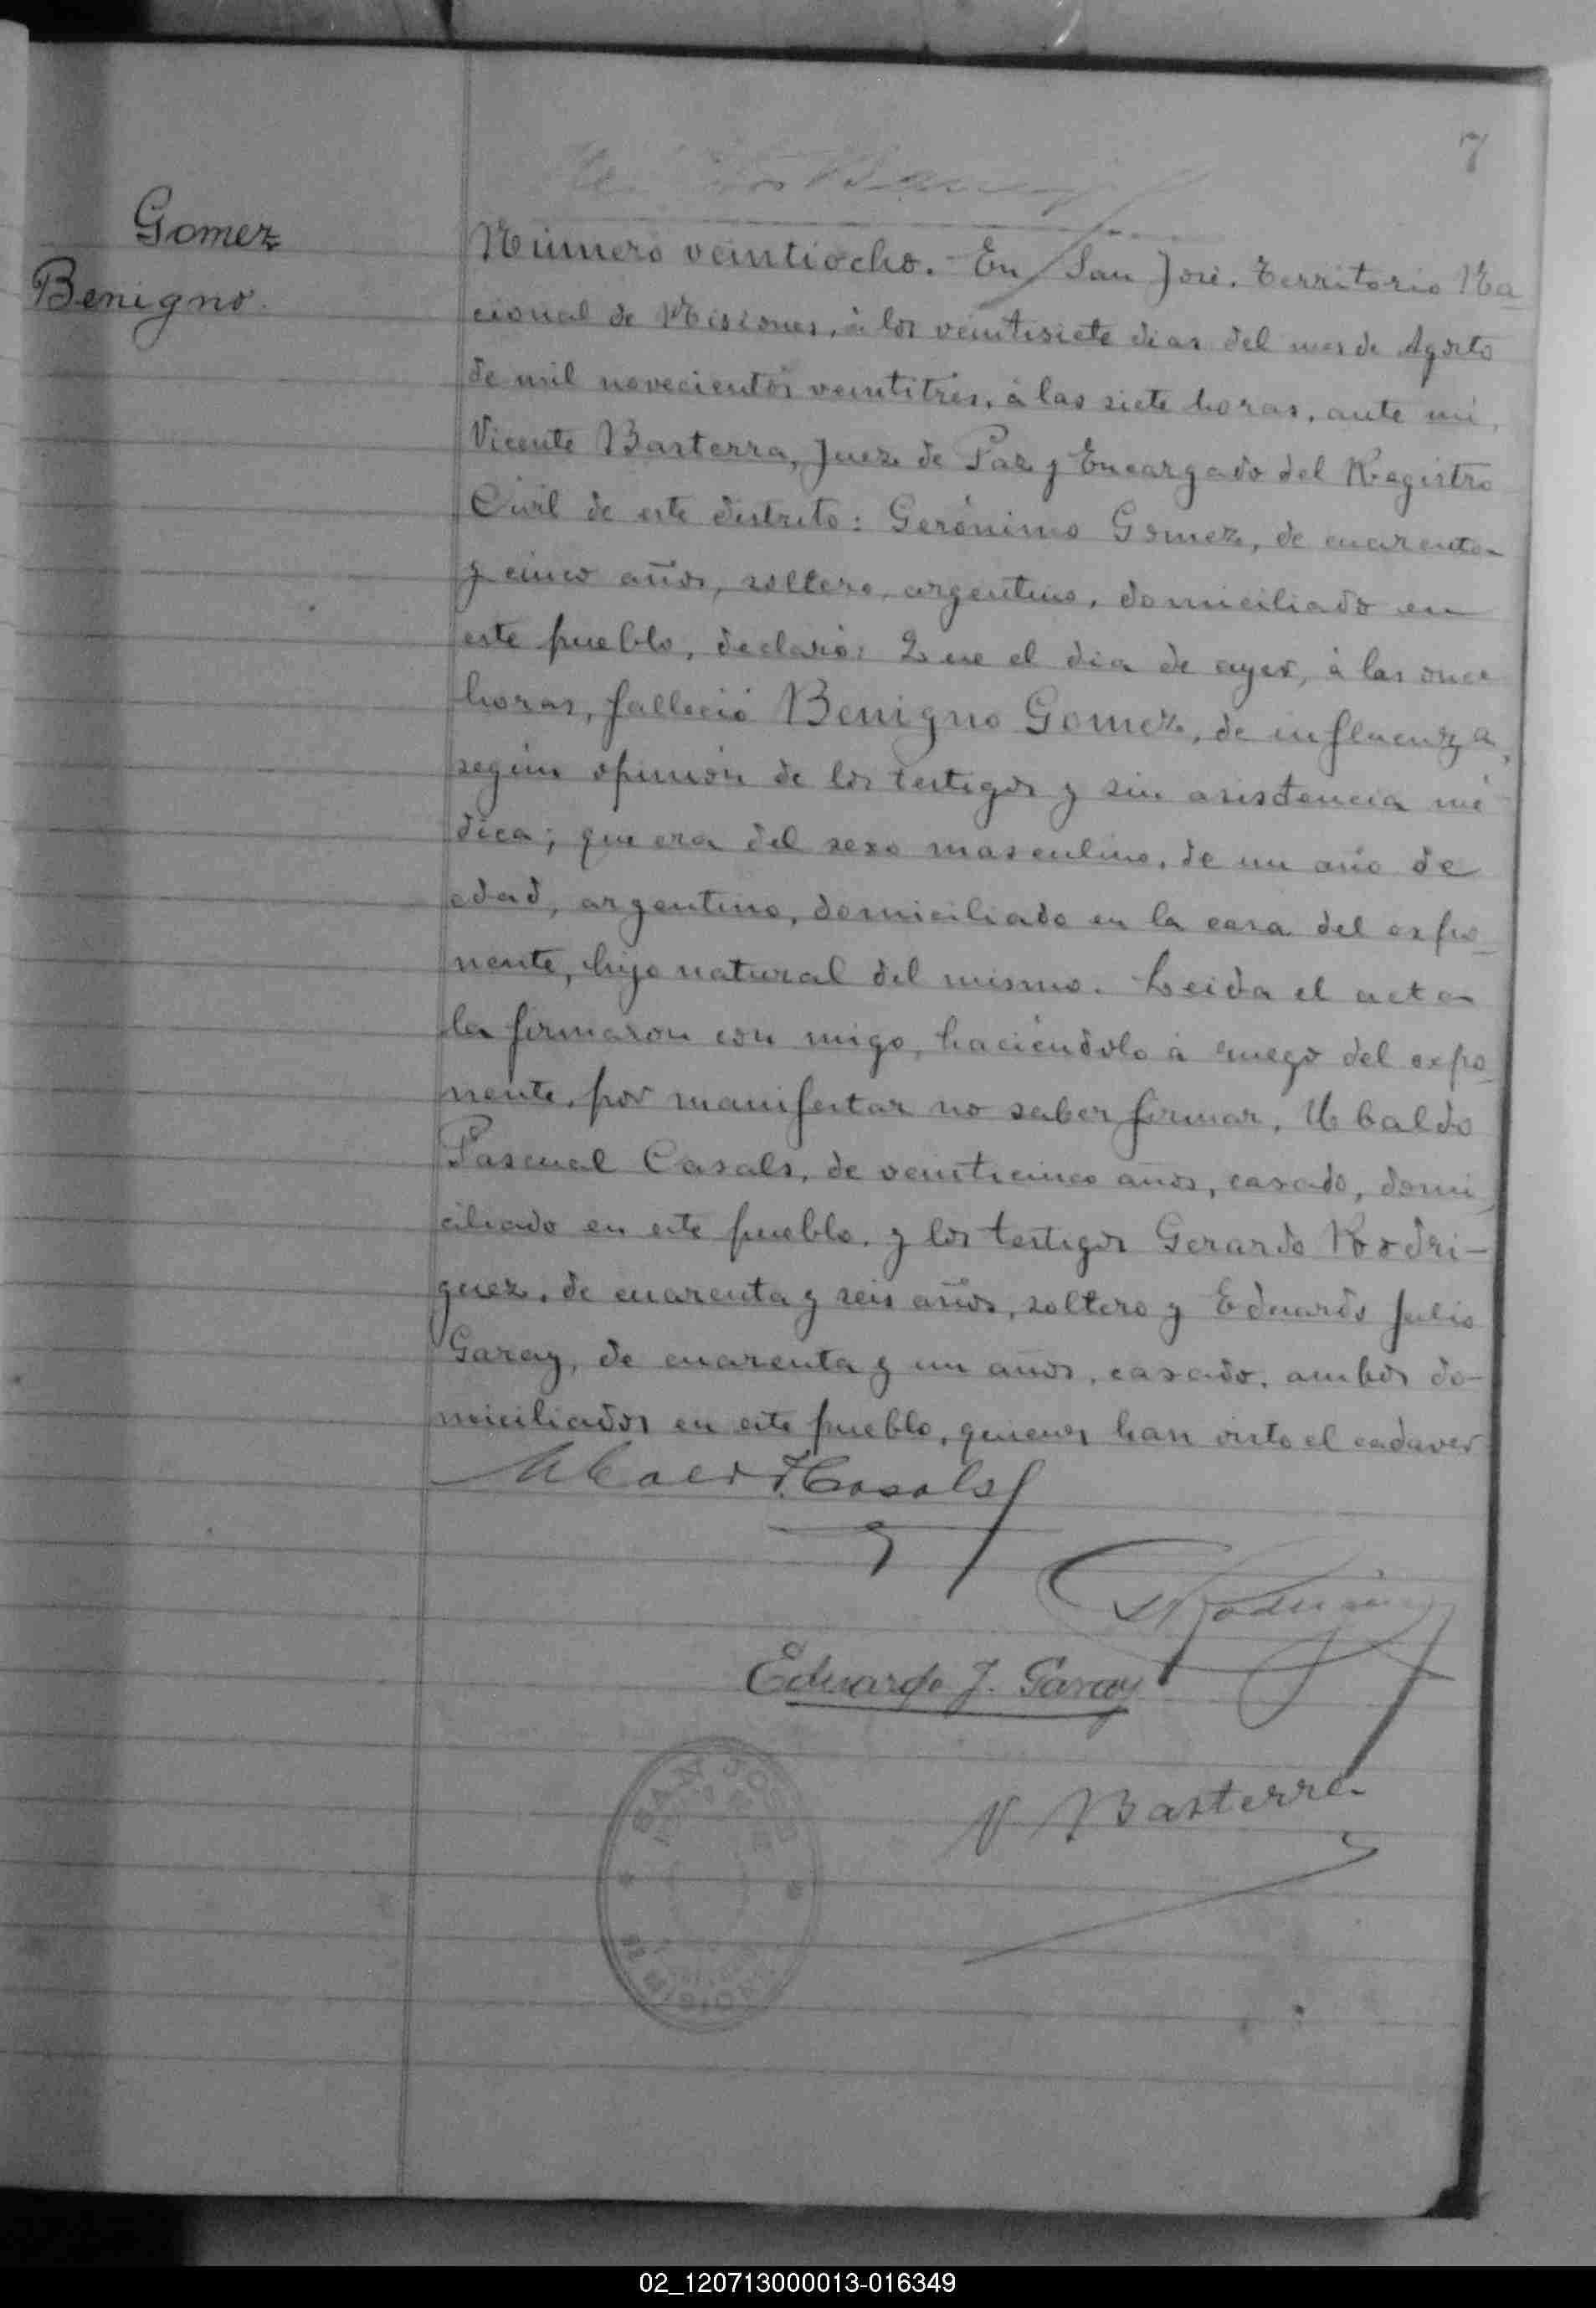 7
Gomez
Benigno.
Número veintiocho. En San José. Territorio Na
cional de Misiones, à los veintisiete dias del mes de Agosto
de mil novecientos veintitrés, à las siete horas, ante mi,
Vicente Basterra, Juez de Paz y Encargado del Registro
Civil de este distrito: Gerónimo Gomez, de cuarenta
y cinco años, soltero, argentino, domiciliado en
este pueblo, declaró: Que el dia de ayer, à las once
horas, falleció Benigno Gomez, de influenza,
según opinión de los testigos y sin asistencia mé
dica; que era del sexo masculino, de un año de
edad, argentino, domiciliado en la casa del expo
nente, hijo natural del mismo. Leida el acta
la firmaron con migo, haciéndolo à ruego del expo
nente, por manifestar no saber firmar, Ubaldo
Pascual Casals, de veinticinco años, casado, domi
ciliado en este pueblo, y los testigos Gerardo Rodri-
guez, de cuarenta y seis años, soltero y Eduardo Julio
Garay, de cuarenta y un años, casado, ambos do-
miciliados en este pueblo, quienes han visto el cadaver
Ubaldo P. Casals
Eduardo J. Garay
V Basterra
SAN JOSÉ
MISIONES
02_120713000013-016349